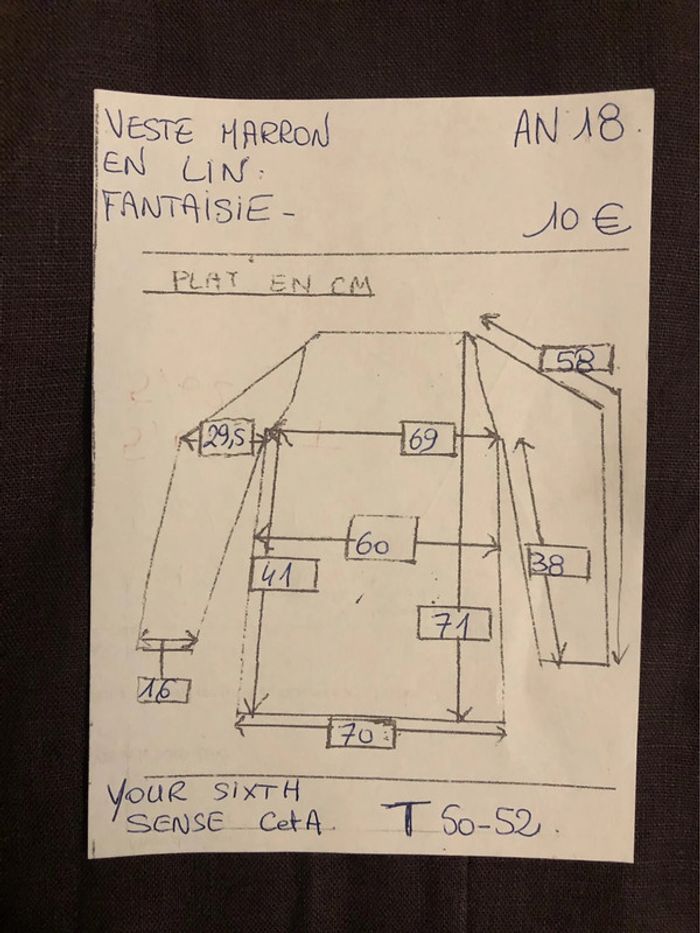 VESTE MARRON
EN LIN.
FANTAISIE -
AN 18.
10 €
PLAT EN CM
58
29,5
69
60
41
38
71
16
70
YOUR SIXTH
SENSE CetA.
T 50-52.